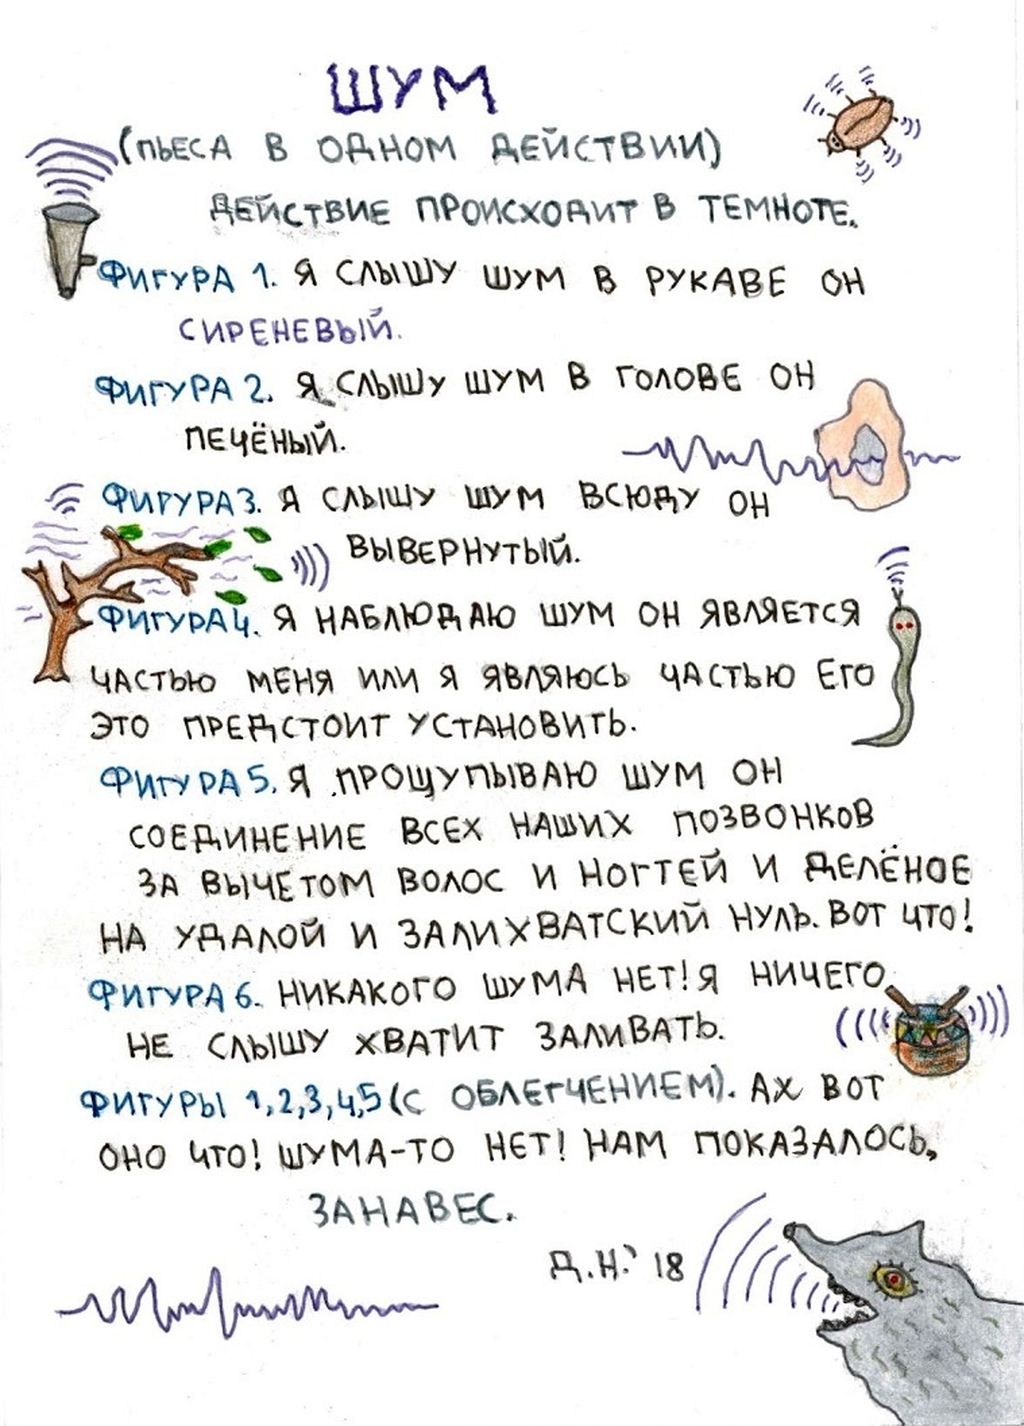 ШУМ
(ПЬЕСА В ОДНОМ ДЕЙСТВИИ)
ДЕЙСТВИЕ ПРОИСХОДИТ В ТЕМНОТЕ.
ФИГУРА 1. Я СЛЫШУ ШУМ В РУКАВЕ ОН
СИРЕНЕВЫЙ.
ФИГУРА 2. Я СЛЫШУ ШУМ В ГОЛОВЕ ОН
ПЕЧЁНЫЙ.
ФИГУРА 3. Я СЛЫШУ ШУМ ВСЮДУ ОН
ВЫВЕРНУТЫЙ.
ФИГУРА 4. Я НАБЛЮДАЮ ШУМ ОН ЯВЛЯЕТСЯ
ЧАСТЬЮ МЕНЯ ИЛИ Я ЯВЛЯЮСЬ ЧАСТЬЮ ЕГО
ЭТО ПРЕДСТОИТ УСТАНОВИТЬ.
ФИГУРА 5. Я ПРОЩУПЫВАЮ ШУМ ОН
СОЕДИНЕНИЕ ВСЕХ НАШИХ ПОЗВОНКОВ
ЗА ВЫЧЕТОМ ВОЛОС И НОГТЕЙ И ДЕЛЁНОЕ
НА УДАЛОЙ И ЗАЛИХВАТСКИЙ НУЛЬ. ВОТ ЧТО!
ФИГУРА 6. НИКАКОГО ШУМА НЕТ! Я НИЧЕГО
НЕ СЛЫШУ ХВАТИТ ЗАЛИВАТЬ.
ФИГУРЫ 1,2,3,4,5 (С ОБЛЕГЧЕНИЕМ). АХ ВОТ
ОНО ЧТО! ШУМА-ТО НЕТ! НАМ ПОКАЗАЛОСЬ.
ЗАНАВЕС.
Д.Н.' 18